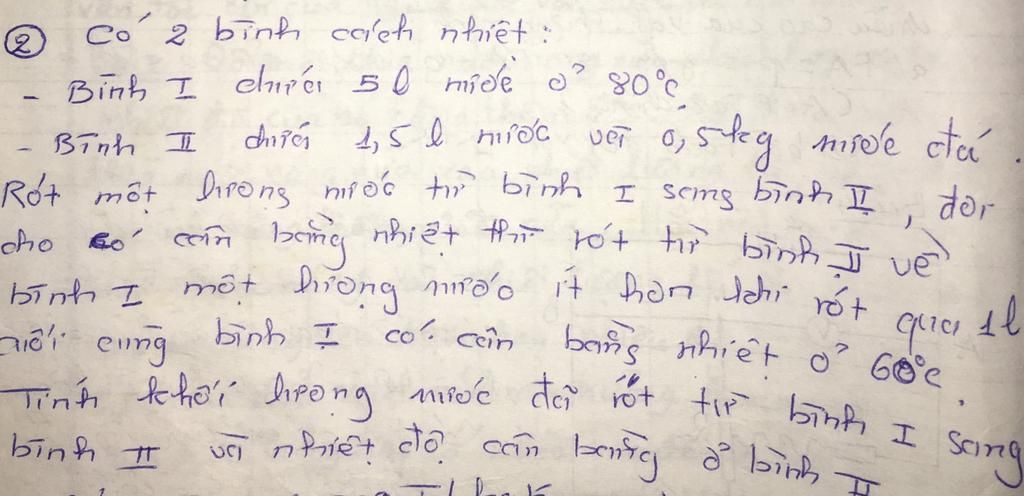 ② Có 2 bình cách nhiệt:
- Bình I chứa 5 l nước ở 80°C.
- Bình II chứa 1,5 l nước với 0,5 kg nước đá.
Rót một lượng nước từ bình I sang bình II, đợi
cho có cân bằng nhiệt thì rót từ bình II về
bình I một lượng nước ít hơn khi rót qua 1 l
cuối cùng bình I có cân bằng nhiệt ở 60°C.
Tính khối lượng nước đã rót từ bình I sang
bình II và nhiệt độ cân bằng ở bình II